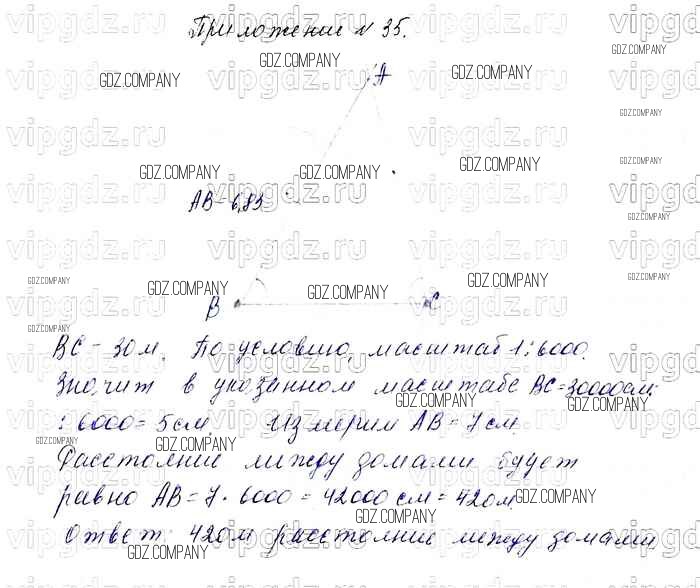 Приложение N 35.
A
AB-6,83
B C
BC - 30 м. По условию, масштаб 1:6000.
Значит в указанном масштабе BC=30000см:
:6000=5см. Измерим AB=7см.
Расстояние между домами будет
равно AB=7·6000=42000см=420м.
Ответ: 420м расстояние между домами
vipgdz.ru
GDZ.COMPANY